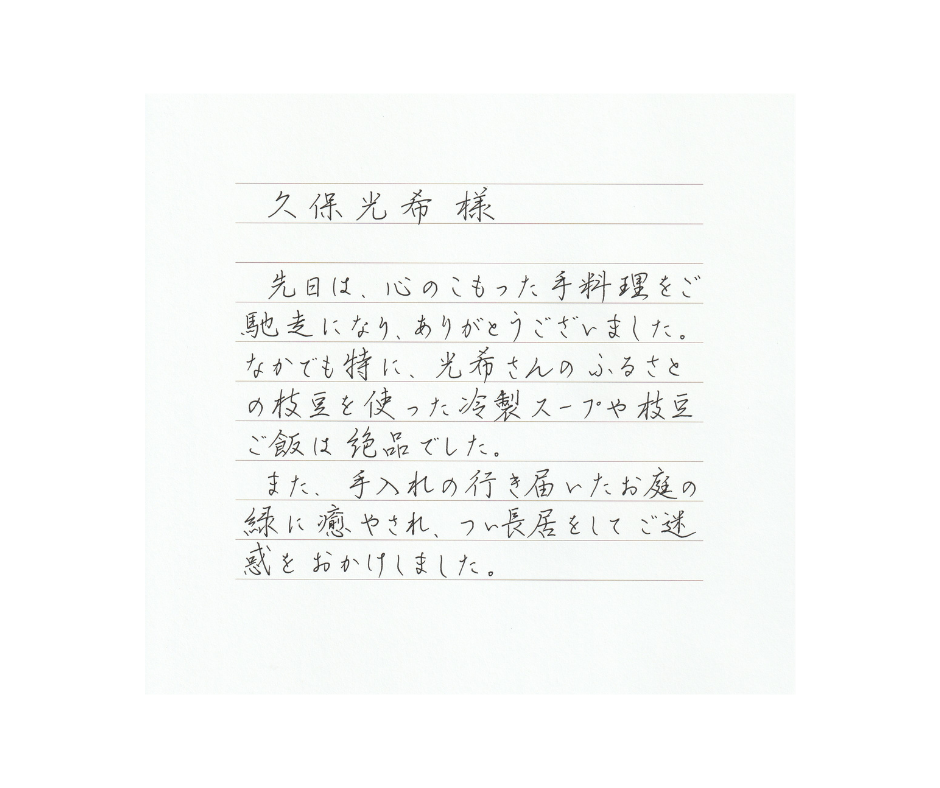 久保光希 様
先日は、心のこもった手料理をご
馳走になり、ありがとうございました。
なかでも特に、光希さんのふるさと
の枝豆を使った冷製スープや枝豆
ご飯は絶品でした。
また、手入れの行き届いたお庭の
緑に癒やされ、つい長居をしてご迷
惑をおかけしました。